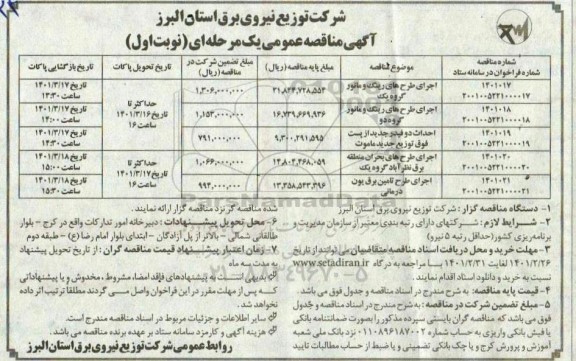 شرکت توزیع نیروی برق استان البرز
آگهی مناقصه عمومی یک مرحله‌ای (نوبت اول)
شماره مناقصه شماره فراخوان در سامانه ستاد | موضوع مناقصه | مبلغ پایه مناقصه (ریال) | مبلغ تضمین شرکت در مناقصه (ریال) | تاریخ تحویل پاکات | تاریخ بازگشایی پاکات
۱۴۰۱۰۱۷ ۲۰۰۱۰۰۵۲۲۱۰۰۰۰۱۷ | اجرای طرح های رینگ و مانور گروه یک | ۲۱,۸۲۶,۷۲۸,۵۵۴ | ۱,۳۰۶,۰۰۰,۰۰۰ | حداکثر تا تاریخ ۱۴۰۱/۳/۱۶ ساعت ۱۶ | تاریخ ۱۴۰۱/۳/۱۷ ۱۳:۳۰
۱۴۰۱۰۱۸ ۲۰۰۱۰۰۵۲۲۱۰۰۰۰۱۸ | اجرای طرح های رینگ و مانور گروه دو | ۱۶,۷۳۹,۶۶۹,۹۳۶ | ۱,۱۵۳,۰۰۰,۰۰۰ | تاریخ ۱۴۰۱/۳/۱۷ ۱۴:۰۰
۱۴۰۱۰۱۹ ۲۰۰۱۰۰۵۲۲۱۰۰۰۰۱۹ | احداث دو فیدر جدید از پست فوق توزیع جدید ماموت | ۹,۳۰۰,۲۹۱,۵۹۵ | ۷۹۱,۰۰۰,۰۰۰ | تاریخ ۱۴۰۱/۳/۱۷ ۱۴:۳۰
۱۴۰۱۰۲۰ ۲۰۰۱۰۰۵۲۲۱۰۰۰۰۲۰ | اجرای طرح های بحران منطقه برق نظرآباد گروه یک | ۱۴,۸۰۲,۴۶۸,۰۵۹ | ۱,۰۶۶,۰۰۰,۰۰۰ | حداکثر تا تاریخ ۱۴۰۱/۳/۱۷ ساعت ۱۶ | تاریخ ۱۴۰۱/۳/۱۸ ۱۵:۰۰
۱۴۰۱۰۲۱ ۲۰۰۱۰۰۵۲۲۱۰۰۰۰۲۱ | اجرای طرح تامین برق یون درمانی | ۱۳,۲۵۸,۵۴۳,۳۹۶ | ۹۹۴,۰۰۰,۰۰۰ | تاریخ ۱۴۰۱/۳/۱۸ ۱۵:۳۰
۱- دستگاه مناقصه گزار: شرکت توزیع نیروی برق استان البرز
۲- شرایط لازم: شرکتهای دارای رتبه بندی معتبر از سازمان مدیریت و
برنامه ریزی کشور (حداقل رتبه ۵ نیرو)
۳- مهلت خرید و محل دریافت اسناد مناقصه: متقاضیان می‌توانند از تاریخ
۱۴۰۱/۲/۲۶ لغایت ۱۴۰۱/۲/۳۱ با مراجعه به درگاه www.setadiran.ir
نسبت به خرید و دانلود اسناد اقدام نمایند.
۴- قیمت پایه مناقصه: به شرح مندرج در اسناد مناقصه و جدول فوق می باشد.
۵- مبلغ تضمین شرکت در مناقصه: به شرح مندرج در اسناد مناقصه و جدول
فوق می باشد که مناقصه گران بایستی سپرده مذکور را بصورت ضمانتنامه بانکی
یا فیش بانکی واریزی به حساب شماره ۰۱۱۰۸۹۶۱۸۷۰۰۲ نزد بانک ملی شعبه
آموزش و پرورش کرج و یا چک بانکی تضمینی و یا ضبط از حساب مطالبات تایید
شده مناقصه گر نزد مناقصه گزار ارائه نمایند.
۶- محل تحویل پیشنهادات: دبیرخانه امور تدارکات واقع در کرج - بلوار
طالقانی شمالی - بالاتر از پل آزادگان - ابتدای بلوار امام رضا (ع) - طبقه دوم
۷- زمان اعتبار پیشنهاد قیمت مناقصه گران: از تاریخ تحویل پیشنهاد
به مدت سه ماه
بدیهی است به پیشنهادهای فاقد امضاء، مشروط، مخدوش و یا پیشنهاداتی
که پس از مهلت مقرر در این فراخوان واصل می گردند مطلقا ترتیب اثر داده
نخواهد شد.
سایر اطلاعات و جزئیات مربوط در اسناد مناقصه مندرج است.
هزینه آگهی و کارمزد سامانه ستاد بر عهده برنده مناقصه می باشد.
روابط عمومی شرکت توزیع نیروی برق استان البرز